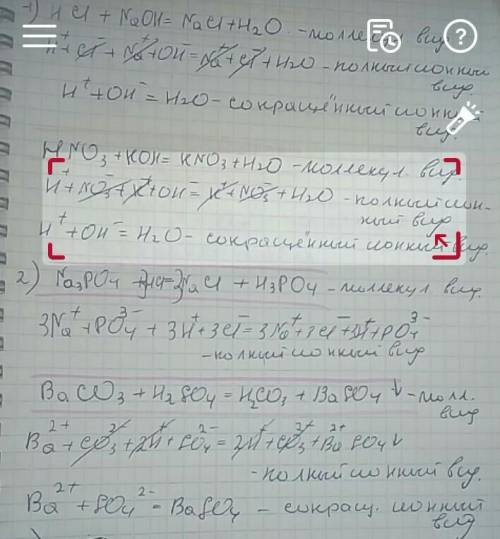 1) HCl + NaOH = NaCl + H2O - моллекул вид.
H⁺ + Cl⁻ + Na⁺ + OH⁻ = Na⁺ + Cl⁻ + H2O - полный ионный
вид.
H⁺ + OH⁻ = H2O - сокращённый ионный
вид.
HNO3 + KOH = KNO3 + H2O - моллекул. вид.
H⁺ + NO3⁻ + K⁺ + OH⁻ = K⁺ + NO3⁻ + H2O - полный ион-
ный вид
H⁺ + OH⁻ = H2O - сокращённый ионный вид.
2) Na3PO4 + 3HCl = 3NaCl + H3PO4 - моллекул. вид.
3Na⁺ + PO4³⁻ + 3H⁺ + 3Cl⁻ = 3Na⁺ + 3Cl⁻ + 3H⁺ + PO4³⁻
- полный ионный вид
BaCO3 + H2SO4 = H2CO3 + BaSO4 ↓ - молл.
вид
Ba²⁺ + CO3²⁻ + 2H⁺ + SO4²⁻ = 2H⁺ + CO3²⁻ + Ba²⁺SO4↓
- полный ионный вид.
Ba²⁺ + SO4²⁻ = BaSO4 - сокращ. ионный
вид